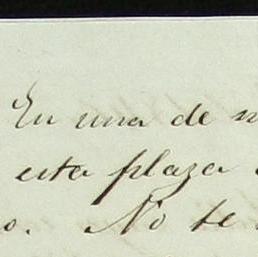 En una de
esta plaza
o. No te